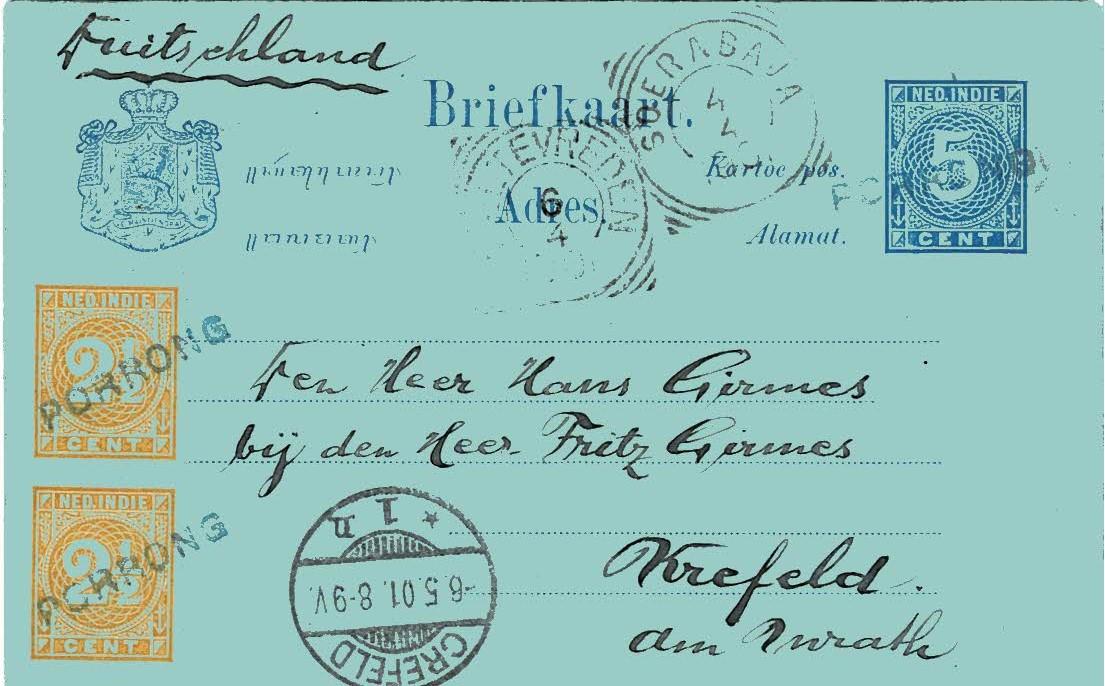 Duitschland
Briefkaart.
Adres.
Kartoe pos.
Alamat.
SOERABAJA
4
4
WELTEVREDEN
6
4
NED. INDIE
5
CENT
PORRONG
NED. INDIE
2½
CENT
PORRONG
NED. INDIE
2½
CENT
PORRONG
Den Heer Hans Girmes
bij den Heer Fritz Girmes
Krefeld.
am Inrath
CREFELD
-6.5.01. 8-9V.
* 1 n